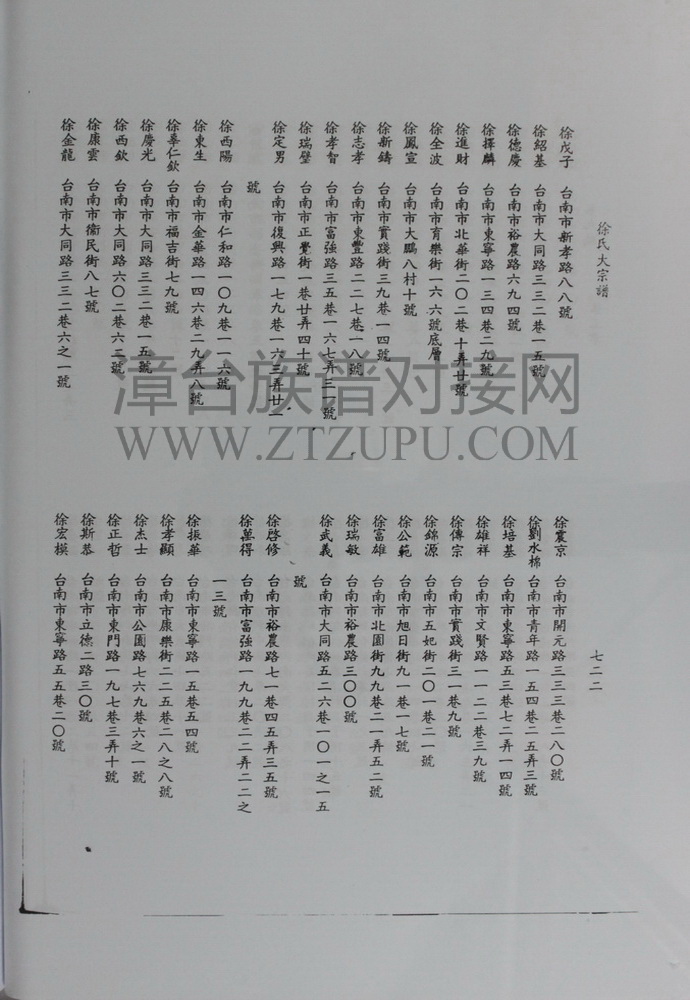 徐氏大宗譜
徐戊子 台南市新孝路八八號
徐紹基 台南市大同路三三二巷一五號
徐德慶 台南市裕農路六九四號
徐擇麟 台南市東寧路一三四巷二九號
徐進財 台南市北華街二〇二巷十弄廿號
徐全波 台南市育樂街一六六號底層
徐鳳宣 台南市大鵬八村十號
徐新鑄 台南市實踐街三九巷一四號
徐志孝 台南市東豐路二二七巷一八號
徐孝智 台南市富強路三五巷一六七弄三一號
徐瑞璧 台南市正覺街一巷廿弄四十號
徐定男 台南市復興路一七九巷一六三弄廿一
號
徐西陽 台南市仁和路一〇九巷一一六號
徐東生 台南市金華路一四六巷二九弄八號
徐辜仁欽 台南市福吉街七九號
徐慶光 台南市大同路三三二巷一五號
徐西欽 台南市大同路六〇二巷六二號
徐康雲 台南市衞民街八七號
徐金龍 台南市大同路三三二巷六之一號
徐震京 台南市開元路三三三巷二八〇號
徐劉水棉 台南市青年路一五四巷二五弄三號
徐培基 台南市東寧路五三巷七二弄一四號
徐雄祥 台南市文賢路一一二二巷三九號
徐傳宗 台南市實踐街三一巷九號
徐錦源 台南市五妃街二〇一巷二一號
徐公範 台南市旭日街九一巷一七號
徐富雄 台南市北園街九九巷二一弄五二號
徐瑞敏 台南市裕農路三〇〇號
徐武義 台南市大同路五二六巷一〇一之一五
號
徐啓修 台南市裕農路七一巷四五弄三五號
徐萬得 台南市富強路一九九巷二二弄二二之
一三號
徐振華 台南市東寧路一五巷五四號
徐孝顯 台南市康樂街二二五巷二八之八號
徐杰士 台南市公園路七六九巷六之一號
徐正哲 台南市東門路一九七巷三弄十號
徐斯慕 台南市立德二路三〇號
徐宏模 台南市東寧路五五巷二〇號
七二二
漳台族谱对接网
WWW.ZTZUPU.COM